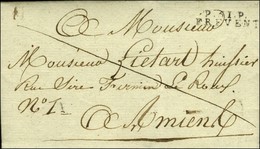 P. 61. P.
FREVENT
A Monsieur
Monsieur Lietart huissier
Rue Sire Firmin Le Roux
N.° 7.
A Amiens